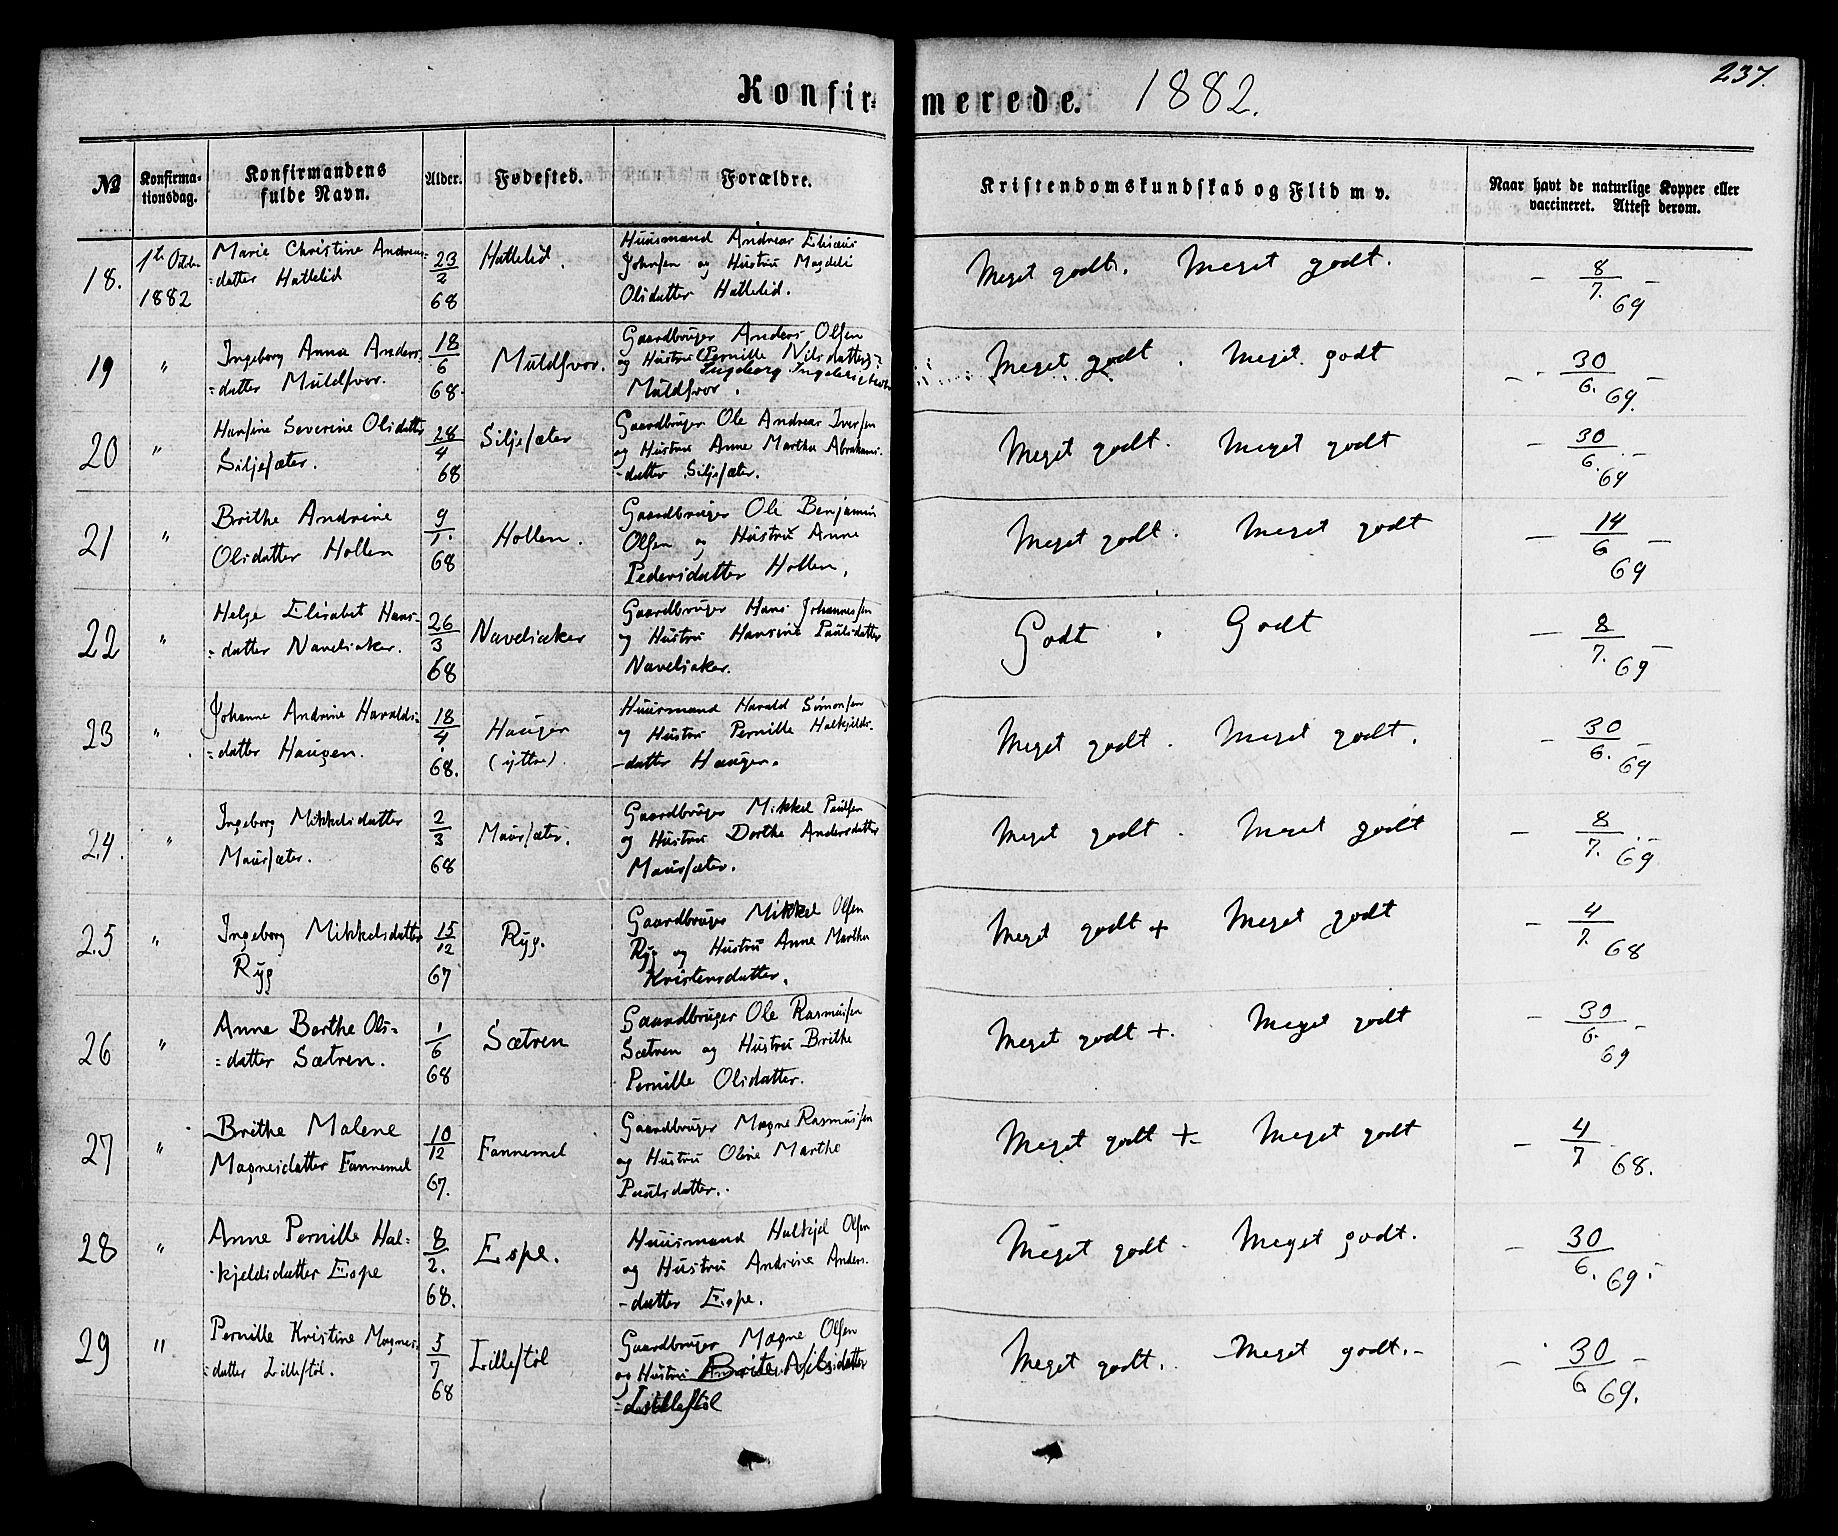 Konfirmerede. 1882. 237.
№ Konfirmationsdag. Konfirmandens fulde Navn. Alder. Fødested. Forældre. Kristendomskundskab og Flid m v. Naar havt de naturlige Kopper eller vaccineret. Attest derom.
18. 1ste Octbr 1882 Marie Christine Andreas=
=datter Hattelid 23/2 68 Hattelid. Huusmand Andreas Elisæus
Johnsen og Hustru Magdeli
Olsdatter Hattelid. Meget godt. Meget godt. – 8/7. 69 –
19 " Ingeborg Anna Anders=
=datter Muldsvor. 18/6 68. Muldsvor. Gaardbruger Anders Olsen
og Hustru (Pernille Nilsdatter)
Ingeborg
Muldsvor. Meget godt. Meget godt – 30/6. 69. –
20 " Hansine Severine Olsdatter
Siljesæter. 28/4 68 Siljesæter Gaardbruger Ole Andreas Iversen
og Hustru Anne Martha Abrahams=
=datter Siljesæter. Meget godt. Meget godt – 30/6. 69 –
21 " Brithe Andrine
Olsdatter Hollen 9/1. 68 Hollen. Gaardbruger Ole Benjamin
Olsen og Hustru Anne
Pedersdatter Hollen. Meget godt. Meget godt – 14/6 69 –
22 " Helge Elisabet Hans=
=datter Navelsaker. 26/3 68 Navelsaker Gaardbruger Hans Johannessen
og Hustru Hansine Paulsdatter
Navelsaker. Godt. Godt – 8/7. 69 –
23 " Johanne Andrine Haralds=
=datter Haugen. 18/4 68. Haugen
(yttre). Huusmand Harald Simonsen
og Hustru Pernille Halkjelds=
=datter Haugen. Meget godt. Meget godt. – 30/6. 69 –
24. " Ingeborg Mikkelsdatter
Maursæter. 2/3 68 Maursæter. Gaardbruger Mikkel Paulsen
og Hustru Dorthe Andersdatter
Maursæter. Meget godt. Meget godt – 8/7. 69 –
25 " Ingeborg Mikkelsdatter
Ryg 15/12 67 Ryg. Gaardbruger Mikkel Olsen
Ryg og Hustru Anne Martha
Kristensdatter. Meget godt + Meget godt – 4/7. 68
26 " Anne Berthe Ols=
=datter Sætren. 1/6 68 Sætren Gaardbruger Ole Rasmussen
Sætren og Hustru Brithe
Pernille Olsdatter. Meget godt +. Meget godt – 30/6. 69 –
27 " Brithe Malene
Magnesdatter Fannemel 10/12 67. Fannemel Gaardbruger Magne Rasmussen
og Hustru Oline Marthe
Paulsdatter. Meget godt + Meget godt – 4/7 68.
28 " Anne Pernille Hal=
kjeldsdatter Espe 8/2. 68. Espe. Huusmand Halkjel Olsen
og Hustru Andrine Anders=
=datter Espe. Meget godt. Meget godt. – 30/6. 69.
29 " Pernille Kristine Magnes=
=datter Lillestöl. 5/7 68 Lillestöl Gaardbruger Magne Olsen
og Hustru Brite Nilsdatter
Lillestöl Meget godt. Meget godt. – 30/6 69. –